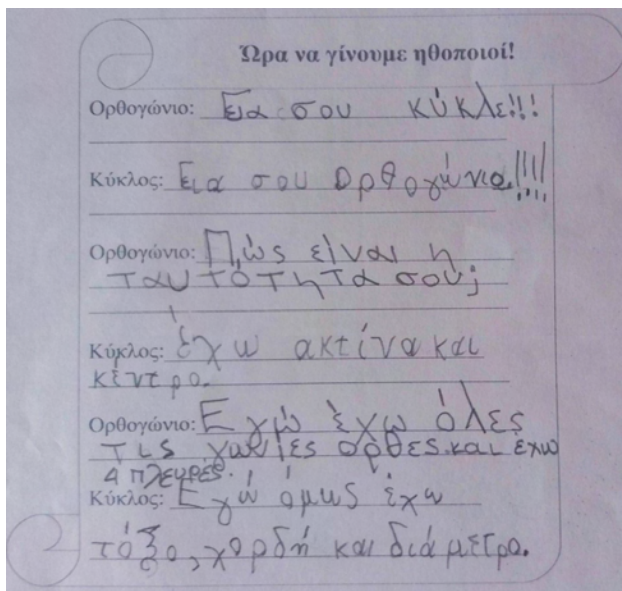 Ώρα να γίνουμε ηθοποιοί!
Ορθογώνιο: Εια σου κύκλε!!!
Κύκλος: Εια σου Ορθογώνιο!!!!
Ορθογώνιο: Πώς είναι η
ταυτότητα σου;
Κύκλος: έχω ακτίνα και
κέντρο.
Ορθογώνιο: Εγώ έχω όλες
τις γωνίες ορθές και έχω
4 πλευρές.
Κύκλος: Εγώ όμως έχω
τόξο, χορδή και διάμετρο.